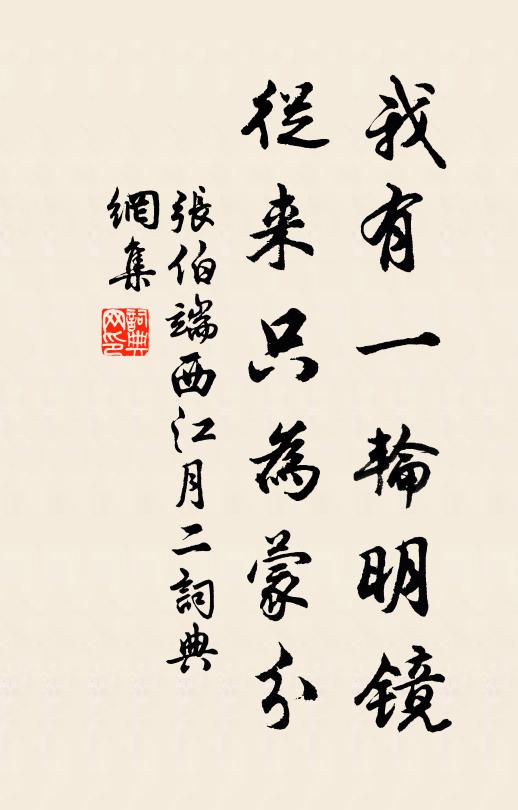 我有一輪明鏡
從来只為蒙分
張伯端西江月二詞典
網集
詞典网印